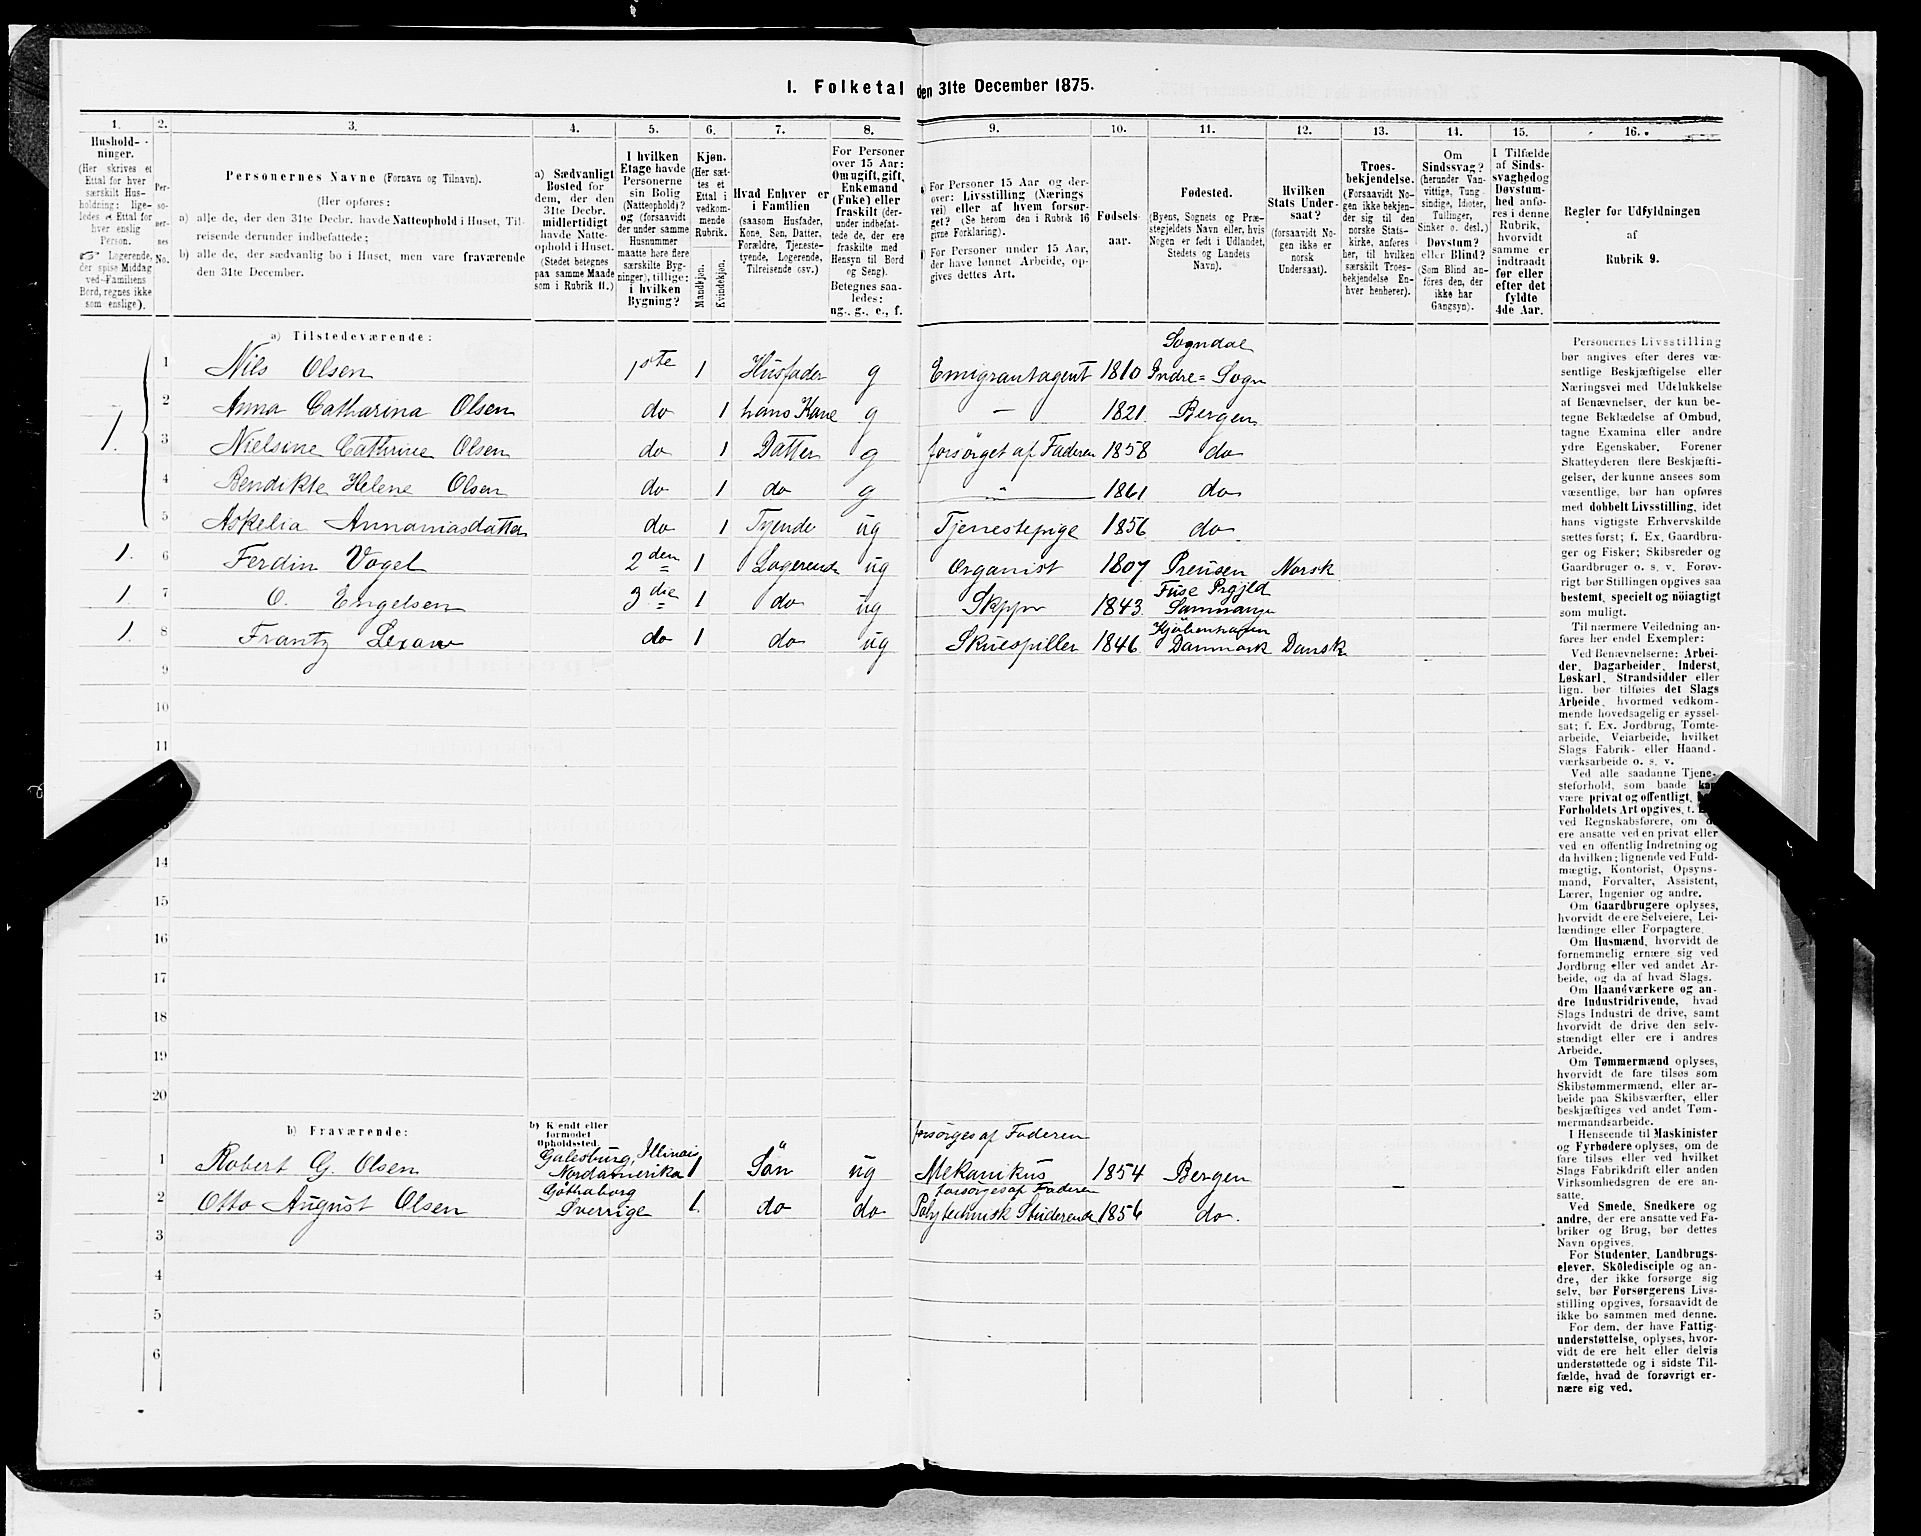 1. Folketal den 31te December 1875.
1. 2. 3. 4. 5. 6. 7. 8. 9. 10. 11. 12. 13. 14. 15. 16.
Hushold-
ninger.
(Her skrives et
Ettal for hver
særskilt Hus-
holdning; lige-
ledes et Ettal for
hver enslig
Person.
Logerende,
der spise Middag
ved Familiens
Bord, regnes ikke
som enslige).
Per-
so-
ner-
nes
No.
Personernes Navne (Fornavn og Tilnavn).
(Her opføres:
a) alle de, der den 31te Decbr. havde Natteophold i Huset, Til-
reisende derunder indbefattede;
b) alle de, der sædvanlig bo i Huset, men vare fraværende
den 31te December.
a) Sædvanligt
Bosted for
dem, der den
31te Decbr.
midlertidigt
havde Natte-
ophold i Huset.
(Stedet betegnes
paa samme Maade
som i Rubrik 11.)
I hvilken
Etage havde
Personerne
sin Bolig
(Natteophold)?
og (forsaavidt
der under samme
Husnummer
maatte høre flere
særskilte Byg-
ninger), tillige:
i hvilken
Bygning?
Kjøn.
(Her sæt-
tes et
Ettal i
vedkom-
mende
Rubrik.
Mandkjøn.
Kvindekjøn.
Hvad Enhver er
i Familien
(saasom Husfader,
Kone, Søn, Datter,
Forældre, Tjeneste-
tyende, Logerende,
Tilreisende osv.)
For Personer
over 15 Aar:
Om ugift, gift,
Enkemand
(Enke) eller
fraskilt (der-
under indbefat-
tede de, der ere
fraskilte med
Hensyn til Bord
og Seng).
Betegnes saa-
ledes:
ug., g., e., f.
For Personer 15 Aar og der-
over: Livsstilling (Nærings-
vei) eller af hvem forsør-
get? (Se herom den i Rubrik 16
givne Forklaring).
For Personer under 15 Aar,
der have lønnet Arbeide, op-
gives dettes Art.
Fødsels-
aar.
Fødested.
(Byens, Sognets og Præ-
stegjeldets Navn eller, hvis
Nogen er født i Udlandet,
Stedets og Landets
Navn).
Hvilken
Stats Under-
saat?
(forsaavidt No-
gen ikke er
norsk
Undersaat).
Troes-
bekjendelse.
(Forsaavidt No-
gen ikke bekjen-
der sig til den
norske Stats-
kirke, anføres
her, til hvilken
særskilt Troes-
bekjendelse En-
hver henhører).
Om
Sindssvag?
(herunder Van-
vittige, Tung-
sindige, Idioter,
Tullinger,
Sinker o. desl.)
Døvstum?
eller Blind?
(Som Blind an-
föres den, der
ikke har
Gangsyn).
I Tilfælde
af Sinds-
svaghed og
Døvstum-
hed anfø-
res i denne
Rubrik,
hvorvidt
samme er
indtraadt
før eller
efter det
fyldte
4de Aar.
Regler for Udfyldningen
af
Rubrik 9.
a) Tilstedeværende:
Sogndal
1 Nils Olsen 1ste 1 Husfader g Emigrantagent 1810 Indre= Sogn
1. 2 Anna Catharina Olsen do 1 hans Kone g — 1821 Bergen
3 Nielsine Cathrine Olsen do 1 Datter g forsörget af Faderen 1858 do
4 Bendikte Helene Olsen do 1 do g " 1861 do
5 Askelia Annaniasdatter do 1 Tyende ug Tjenestepige 1856 do.
1. 6 Ferdin Vogel 2den 1 Logerende ug Organist 1807 Preusen Norsk
Fuse Prgjld
1. 7 O. Engelsen 3die 1 do ug Skppr 1843
Kjöbenhavn
1. 8 Frantz do 1 do ug Skuespiller 1846 Danmark Dansk
9
10
11
14
15
16
17
18
19
20
b) Fraværende:
b) Kjendt eller
formodet
Opholdssted.
forsörges af Faderen
Galesburg, Illinois
1 Robert G. Olsen Nordamerika 1 Sön ug Mekanikus 1854 Bergen
Göthaborg forsörges af Faderen
2 Otto August Olsen Sverrige 1. do do Polyteknisk Studerende 1856 do.
3
4
5
6
Personernes Livsstilling
bør angives efter deres væ-
sentlige Beskjæftigelse eller
Næringsvei med Udelukkelse
af Benævnelser, der kun be-
tegne Beklædelse af Ombud,
tagne Examina eller andre
ydre Egenskaber. Forener
Skatteyderen flere Beskjæfti-
gelser, der kunne ansees som
væsentlige, bør han opføres
med dobbelt Livsstilling, idet
hans vigtigste Erhvervskilde
sættes først; f. Ex. Gaardbru-
ger og Fisker; Skibsreder og
Gaardbruger o. s. v. Forøv-
rigt bør Stillingen opgives saa
bestemt, specielt og nöiagtigt
som muligt.
Til nærmere Veiledning an-
føres her endel Exempler:
Ved Benævnelserne: Arbei-
der, Dagarbeider, Inderst,
Løskarl, Strandsidder eller
lign. bør tilføies det Slags
Arbeide, hvormed vedkom-
mende hovedsagelig er syssel-
sat; f. Ex. Jordbrug, Tomte-
arbeide, Veiarbeide, hvilket
Slags Fabrik- eller Haand-
værksarbeide o. s. v.
Ved alle saadanne Tjene-
steforhold, som baade kan
være privat og offentligt,
Forholdets Art opgives, t.
ved Regnskabsførere, om de
ere ansatte ved en privat eller
ved en offentlig Indretning og
da hvilken; lignende ved Fuld-
mægtig, Kontorist, Opsyns-
mand, Forvalter, Assistent,
Lærer, Ingeniør og andre.
Om Gaardbrugere oplyses,
hvorvidt de ere Selveiere, Lei-
lændinge eller Forpagtere.
Om Husmænd, hvorvidt de
fornemmelig ernære sig ved
Jordbrug eller ved andet Ar-
beide, og da af hvad Slags.
Om Haandværkere og an-
dre Industridrivende, hvad
Slags Industri de drive, samt
hvorvidt de drive den selv-
stændigt eller ere i andres
Arbeide.
Om Tømmermænd oplyses,
hvorvidt de fare tilsøs som
Skibstømmermænd, eller ar-
beide paa Skibsværfter, eller
beskjæftiges ved andet Tøm-
mermandsarbeide.
I Henseende til Maskinister
og Fyrbødere oplyses, om de
fare tilsøs eller ved hvilket
Slags Fabrikdrift eller anden
Virksomhedsgren de ere an-
satte.
Ved Smede, Snedkere og
andre, der ere ansatte ved Fa-
briker og Brug, bør dettes
Navn opgives.
For Studenter, Landbrugs-
elever, Skoledisciple og an-
dre, der ikke forsørge sig
selv, bør Forsørgerens Livs-
stilling opgives, forsaavidt de
ikke bo sammen med denne.
For dem, der have Fattig-
understøttelse, oplyses, hvor-
vidt de ere helt eller delvis
understøttede og i sidste Til-
fælde, hvad de forøvrigt er-
nære sig ved.